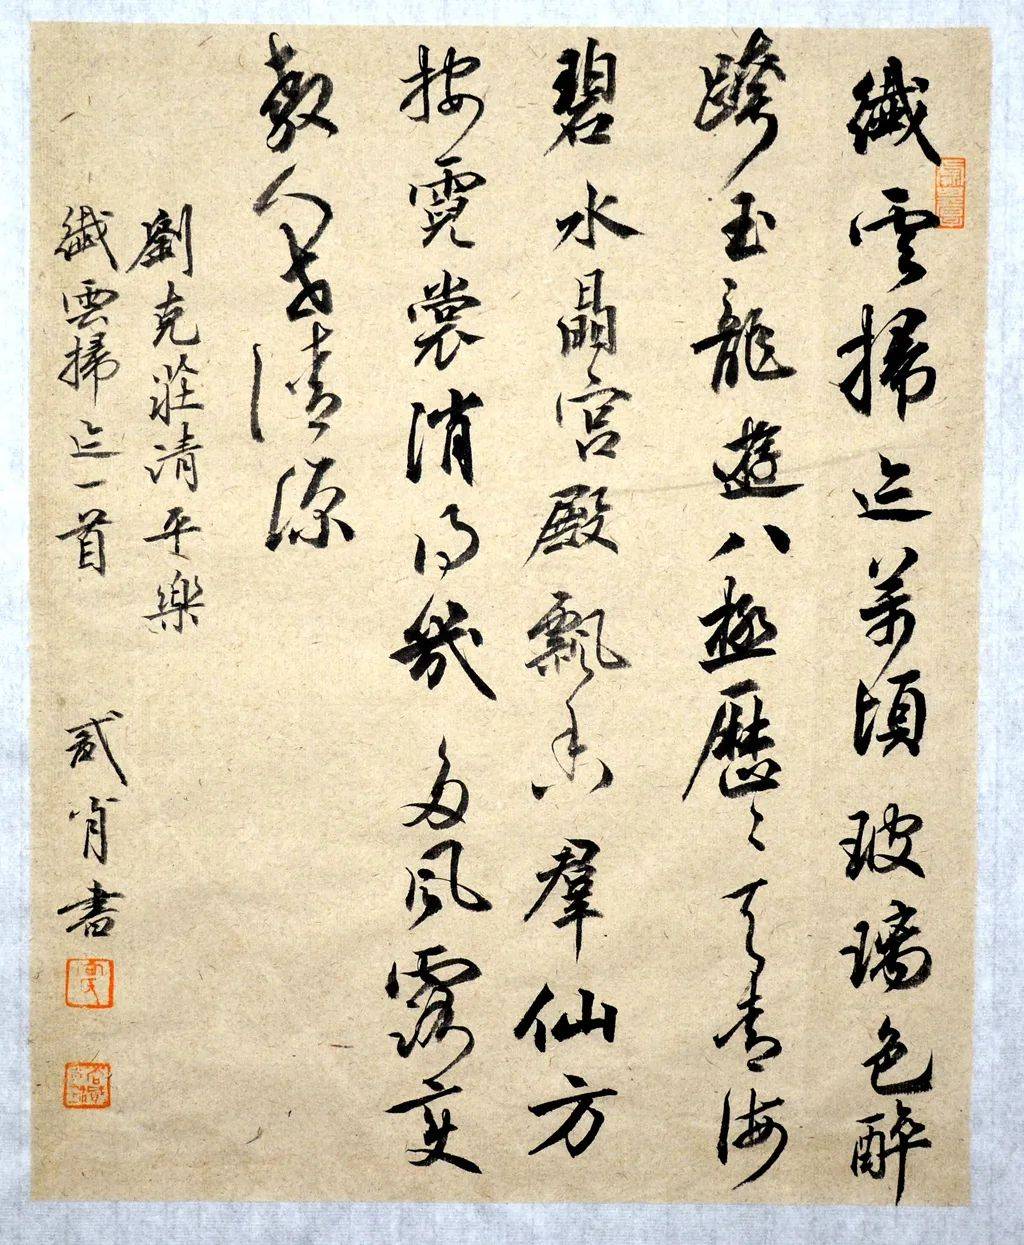 纖雲掃迹萬頃玻璃色醉
跨玉龍遊八極歷〻天青海
碧水晶宮殿飄香羣仙方
按霓裳消得幾多風露變
教人世清涼
劉克莊清平樂
纖雲掃迹一首 貳肖書